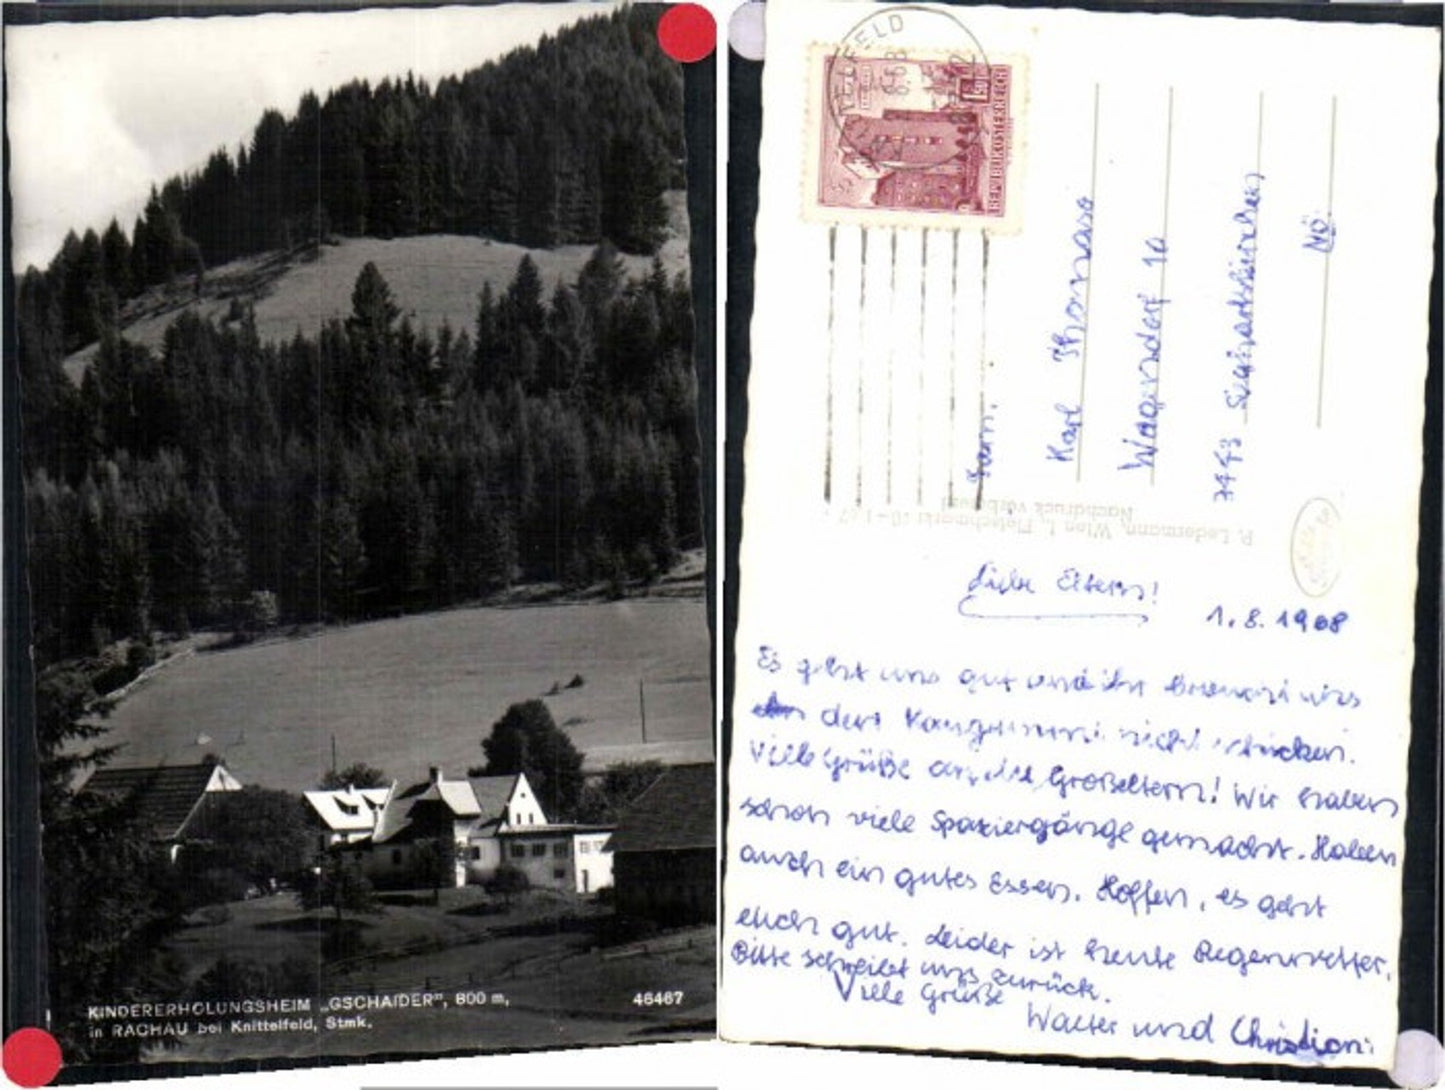 KINDERERHOLUNGSHEIM „GSCHAIDER", 800 m, 46467
in RACHAU bei Knittelfeld, Stmk.
REPUBLIK ÖSTERREICH
1.50
Fam.
Karl Thomaso
Wagendorf 10
7443
NÖ.
P. Ledermann, Wien I, Fleischmarkt
Nachdruck verboten
Liebe Eltern!
1.8.1968
Es geht uns gut und ihr braucht uns
den nicht schicken.
Viele Grüße an die Großeltern! Wir haben
schon viele Spaziergänge gemacht. Haben
auch ein gutes Essen. Hoffen, es geht
euch gut. Leider ist heute Regenwetter.
Bitte schreibt uns zurück.
Viele Grüße
Walter und Christian